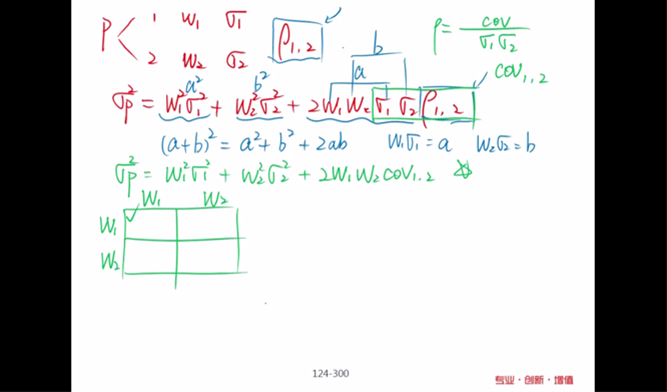 P < 1 W₁ σ₁
2 W₂ σ₂
ρ₁,₂
ρ = cov / σ₁σ₂
b
a
cov₁,₂
a² b²
σₚ² = W₁²σ₁² + W₂²σ₂² + 2W₁W₂σ₁σ₂ρ₁,₂
(a+b)² = a² + b² + 2ab W₁σ₁ = a W₂σ₂ = b
σₚ² = W₁²σ₁² + W₂²σ₂² + 2W₁W₂cov₁,₂
W₁ W₂
W₁ ✓
W₂
124-300
专业·创新·增值